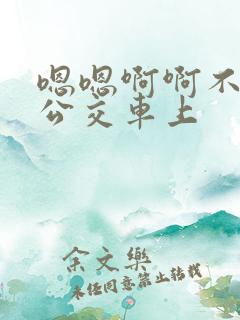 嗯嗯啊啊不
公交車上
余文樂
未经同意禁止转载